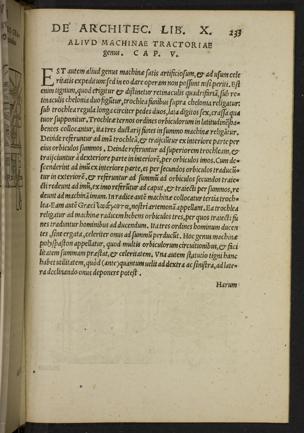 DE ARCHITEC. LIB. X. 233
ALIVD MACHINAE TRACTORIAE
genus. CAP. V.
EST autem aliud genus machinæ satis artificiosum, & ad usum cele
ritatis expeditum, sed in eo dare operam non possunt nisi periti. Est
enim tignum, quod erigitur & distinetur retinaculis quadrifariā, sub re-
tinaculis chelonia duo figūtur, trochlea funibus supra chelonia religatur:
sub trochlea regula longa circiter pedes duos, lata digitos sex, crassa qua
tuor supponitur. Trochleæ ternos ordines orbiculorum in latitudine ha-
bentes collocantur, ita tres ductarij funes in summo machinæ religātur.
Deinde referuntur ad imā trochleā, & traijciūtur ex interiore parte per
eius orbiculos summos. Deinde referuntur ad superiorem trochleam, &
traijciuntur à dexteriore parte in interiorē, per orbiculos imos. Cum de-
scenderint ad imū ex interiore parte, et per secundos orbiculos traducū-
tur in exteriorē, & referuntur ad summū ad orbiculos secundos traiec
ti redeunt ad imū, ex imo referūtur ad caput, & traiecti per summos, re
deunt ad machinā imam. In radice autē machinæ collocatur tertia troch-
lea. Eam autē Græci ἐπάγοντα, nostri artemonē appellant. Ea trochlea
religatur ad machinæ radicem habens orbiculos tres, per quos traiecti fu
nes traduntur hominibus ad ducendum. Ita tres ordines hominum ducen
tes, sine ergata, celeriter onus ad summū perducūt. Hoc genus machinæ
polyspaston appellatur, quod multis orbiculorum circuitionibus, & faci
litatem summam præstat, & celeritatem. Vna autem statutio tigni hanc
habet utilitatem, quòd (ante) quantum uelit ad dextra ac sinistra, ad late-
ra declinando onus deponere potest.
Harum